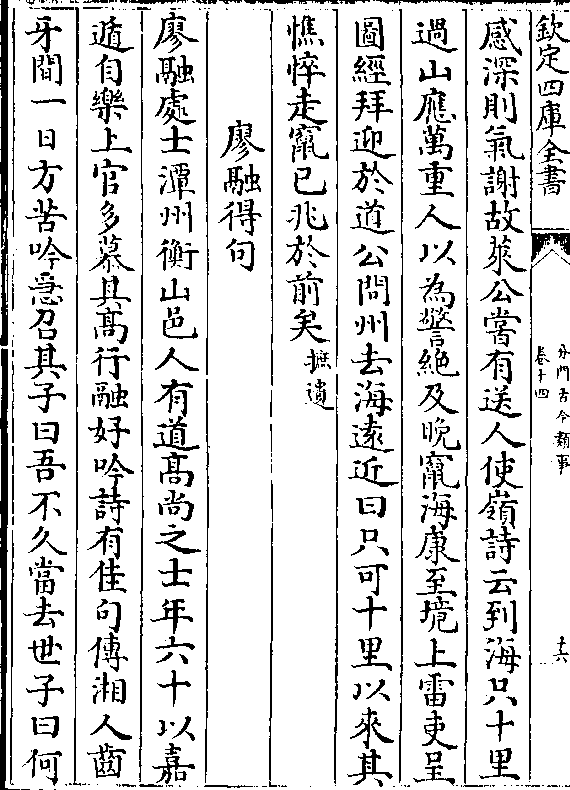 欽定四庫全書
分門古今類事
卷十四
十六
感深則氣謝故萊公嘗有送人使嶺詩云到海只十里
過山應萬重人以為警絶及晚竄海康至境上雷吏呈
圖經拜迎於道公問州去海遠近曰只可十里以來其
憔悴走竄已兆於前矣摭遺
廖融得句
廖融處士潭州衡山邑人有道髙尚之士年六十以嘉
遁自樂上官多慕其髙行融好吟詩有佳句傳湘人齒
牙間一日方苦吟急召其子曰吾不久當去世子曰何